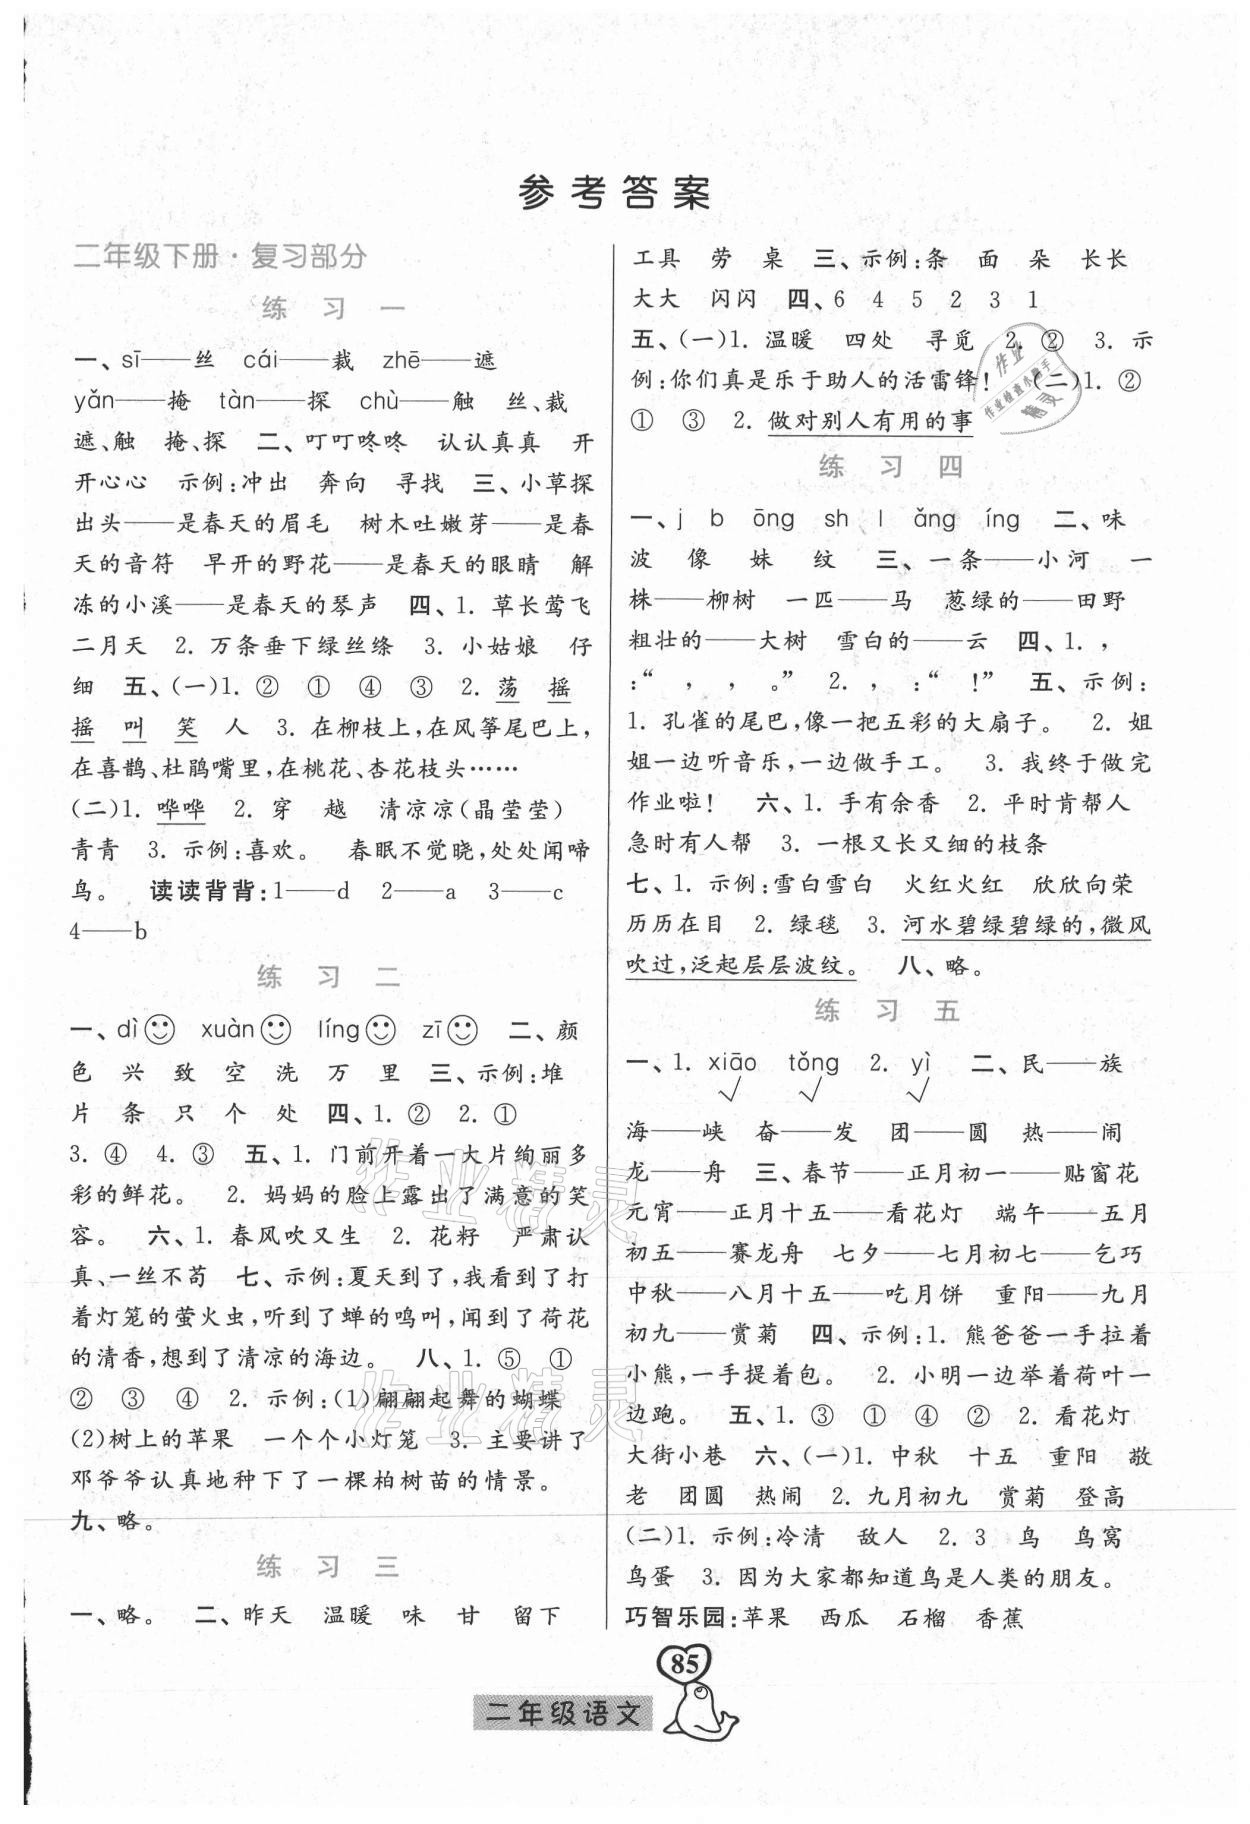 参考答案
二年级下册·复习部分
练 习 一
一、sī——丝 cái——裁 zhē——遮
yǎn——掩 tàn——探 chù——触 丝、裁
遮、触 掩、探 二、叮叮咚咚 认认真真 开
开心心 示例:冲出 奔向 寻找 三、小草探
出头——是春天的眉毛 树木吐嫩芽——是春
天的音符 早开的野花——是春天的眼睛 解
冻的小溪——是春天的琴声 四、1. 草长莺飞
二月天 2. 万条垂下绿丝绦 3. 小姑娘 仔
细 五、(一)1. ② ① ④ ③ 2. 荡 摇
摇 叫 笑 人 3. 在柳枝上,在风筝尾巴上,
在喜鹊、杜鹃嘴里,在桃花、杏花枝头……
(二)1. 哗哗 2. 穿 越 清凉凉(晶莹莹)
青青 3. 示例:喜欢。 春眠不觉晓,处处闻啼
鸟。 读读背背:1——d 2——a 3——c
4——b
练 习 二
一、dì xuàn líng zī 二、颜
色 兴 致 空 洗 万 里 三、示例:堆
片 条 只 个 处 四、1. ② 2. ①
3. ④ 4. ③ 五、1. 门前开着一大片绚丽多
彩的鲜花。 2. 妈妈的脸上露出了满意的笑
容。 六、1. 春风吹又生 2. 花籽 严肃认
真、一丝不苟 七、示例:夏天到了,我看到了打
着灯笼的萤火虫,听到了蝉的鸣叫,闻到了荷花
的清香,想到了清凉的海边。 八、1. ⑤ ①
② ③ ④ 2. 示例:(1)翩翩起舞的蝴蝶
(2)树上的苹果 一个个小灯笼 3. 主要讲了
邓爷爷认真地种下了一棵柏树苗的情景。
九、略。
练 习 三
一、略。 二、昨天 温暖 味 甘 留下
工具 劳 桌 三、示例:条 面 朵 长长
大大 闪闪 四、6 4 5 2 3 1
五、(一)1. 温暖 四处 寻觅 2. ② 3. 示
例:你们真是乐于助人的活雷锋! (二)1. ②
① ③ 2. 做对别人有用的事
练 习 四
一、j b ōng sh l ǎng íng 二、味
波 像 妹 纹 三、一条——小河 一
株——柳树 一匹——马 葱绿的——田野
粗壮的——大树 雪白的——云 四、1. ,
:“ , , 。” 2. , :“ !” 五、示例:
1. 孔雀的尾巴,像一把五彩的大扇子。 2. 姐
姐一边听音乐,一边做手工。 3. 我终于做完
作业啦! 六、1. 手有余香 2. 平时肯帮人
急时有人帮 3. 一根又长又细的枝条
七、1. 示例:雪白雪白 火红火红 欣欣向荣
历历在目 2. 绿毯 3. 河水碧绿碧绿的,微风
吹过,泛起层层波纹。 八、略。
练 习 五
一、1. xiāo tǒng 2. yì 二、民——族
√ √ √
海——峡 奋——发 团——圆 热——闹
龙——舟 三、春节——正月初一——贴窗花
元宵——正月十五——看花灯 端午——五月
初五——赛龙舟 七夕——七月初七——乞巧
中秋——八月十五——吃月饼 重阳——九月
初九——赏菊 四、示例:1. 熊爸爸一手拉着
小熊,一手提着包。 2. 小明一边举着荷叶一
边跑。 五、1. ③ ① ④ ② 2. 看花灯
大街小巷 六、(一)1. 中秋 十五 重阳 敬
老 团圆 热闹 2. 九月初九 赏菊 登高
(二)1. 示例:冷清 敌人 2. 3 鸟 鸟窝
鸟蛋 3. 因为大家都知道鸟是人类的朋友。
巧智乐园:苹果 西瓜 石榴 香蕉
85
二年级语文
作业精灵
作业精灵
作业
作业检查小助手
精灵